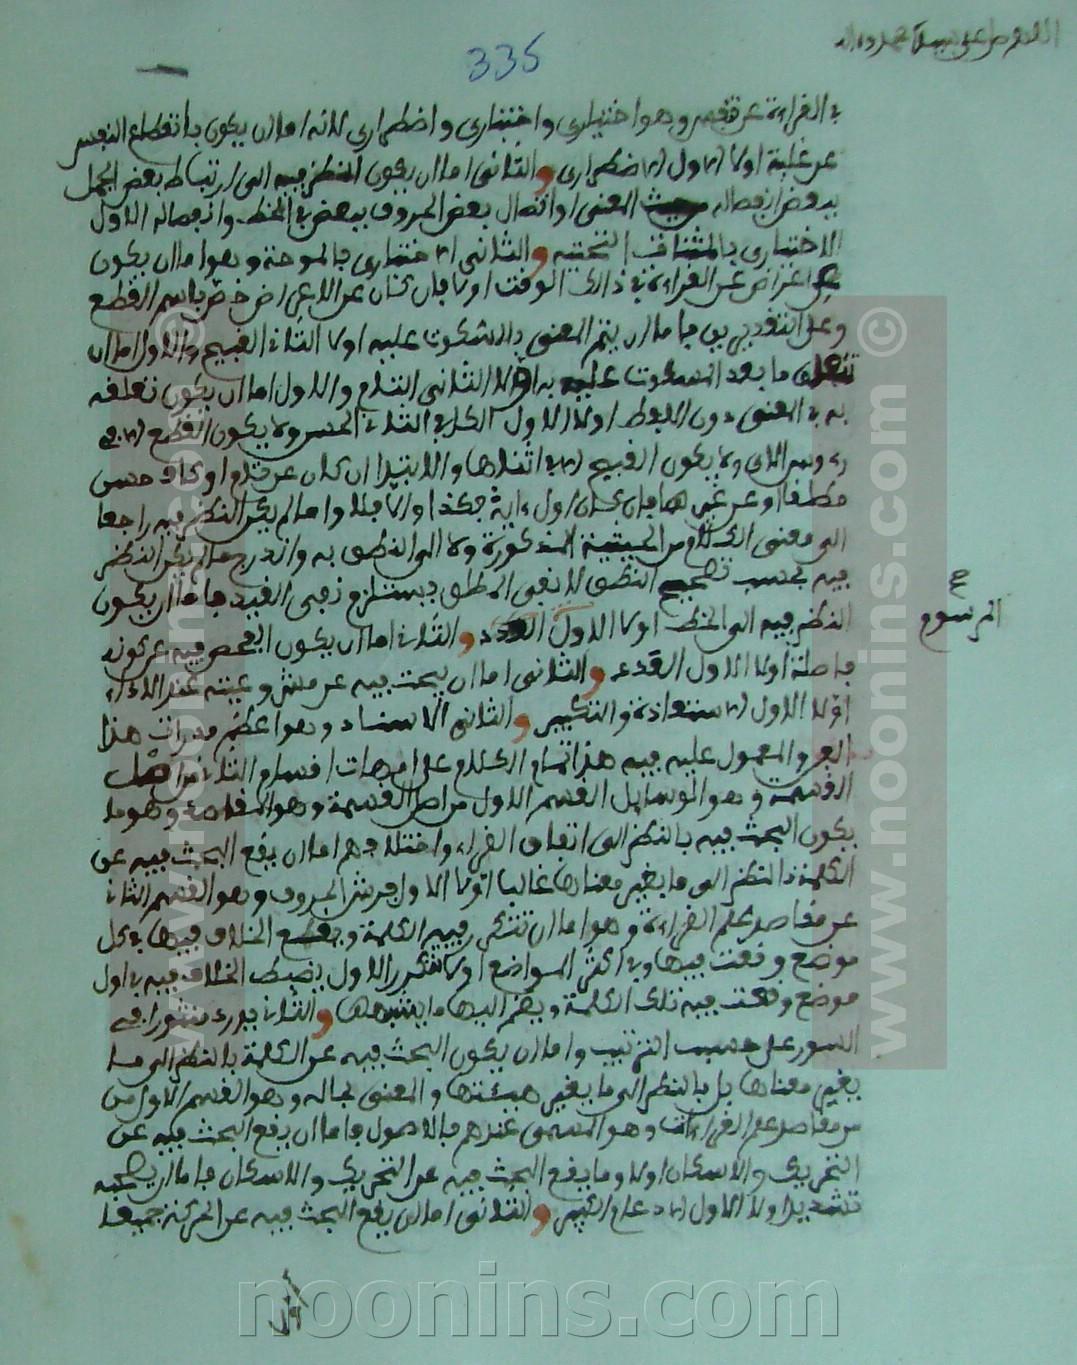 335
في القراءة عن قصر وهو اختياري واختباري واضطراري لانه اما ان يكون بانقطاع النفس
عن غلبة اولا الاول الاضطراري والثاني اما ان يكون النظر فيه الى ارتباط بعض الجمل
ببعض انفصاله من حيث المعنى او اتصال بعض الحروف ببعض في الخط وانفصاله الاول
الاختياري بالمثناة التحتية والثاني الاختباري بالموحدة وهو اما ان يكون
عن اعراض عن القراءة في ذلك الوقت اولا فان كان عن الاعراض خص باسم القطع
وعلى التقديرين فاما ان يتم المعنى بالسكوت عليه اولا الثاني القبيح والاول اما ان
تتعلق ما بعد المسكوت عليه به اولا الثاني التام والاول اما ان يكون تعلقه
به في المعنى دون اللفظ اولا الاول الكافي الثاني الحسن ولا يكون القطع الا في
رءوس الاي ولا يكون القبيح الا في اثنائها والابتدا ان كان عن تام او كاف حسن
مطلقا وعن غيرهما فان كان اول ءاية فكذا والا فلا واما لم يكن النظر فيه راجعا
الى معنى الكلام من الحيثية المذكورة ولا الى النطق به واندرج ما لم يكن النظر
فيه بحسب تصحيح النطق لان نفي المطلق يستلزم نفي القيد فاما ان يكون
النظر فيه الى الخط اولا الاول والثاني اما ان يكون الفحص فيه عن كونه
المرسوم
فاصلة اولا الاول العدد والثاني اما ان يبحث فيه عن عند الاداء
اولا الاول الاستعاذة والتكبير والثاني الاسناد وهو اعظم مدارات هذا
العلم والمعمول عليه فيه هذا تمام الكلام على امهات اقسام الثاني من اصل
القسمة وهو الوسايل القسم الاول من اصل القسمة وهو المقاصد وهو ما
يكون البحث فيه بالنظر الى اتفاق القراء واختلافهم اما ان يقع البحث فيه عن
الكلمة بالنظر الى ما يغير معناها غالبا اولا الاول فرش الحروف وهو القسم الثاني
من مقاصد علم القراءة وهو اما ان تتكرر فيه الكلمة ويقع الخلاف فيها في كل
موضع وقعت فيها وفي اكثر المواضع اولا تتكرر الاول يضبط الخلاف فيه في اول
موضع وقعت فيه تلك الكلمة ويضم اليها ما يشبهها والثاني يورد منثورا في
السور على حسب الترتيب واما ان يكون البحث فيه عن الكلمة بالنظر الى ما
يغير معناها بل بالنظر الى ما يغير هيئتها والمعنى بحاله وهو القسم الاول من
من مقاصد علم القراءات وهو المسمى عندهم بالاصول فاما ان يقع البحث فيه عن
التحريك والاسكان اولا وما يقع البحث فيه عن التحريك والاسكان فاما ان يصحبه
تشديد اولا الاول الادغام الكبير والثاني اما ان يقع البحث فيه عن الحركة جميعا
اولا
www.noonins.com ©
www.noonins.com ©
noonins.com